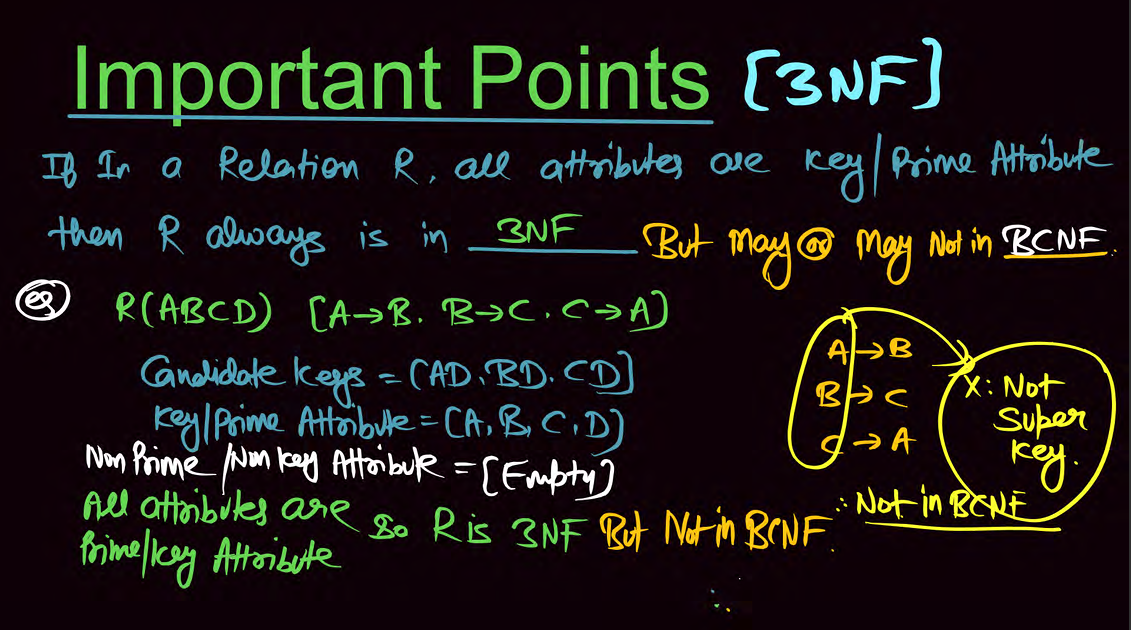 Important Points [3NF]
If In a Relation R, all attributes are key/Prime Attribute
then R always is in 3NF But May or May Not in BCNF.
eg R(ABCD) [A→B. B→C. C→A]
Candidate keys = [AD, BD, CD]
Key/Prime Attribute = [A, B, C, D]
Non Prime/Non key Attribute = [Empty]
All attributes are
Prime/key Attribute
so R is 3NF But Not in BCNF.
A→B
B→C
C→A
X: Not
Super
key.
∴ Not in BCNF